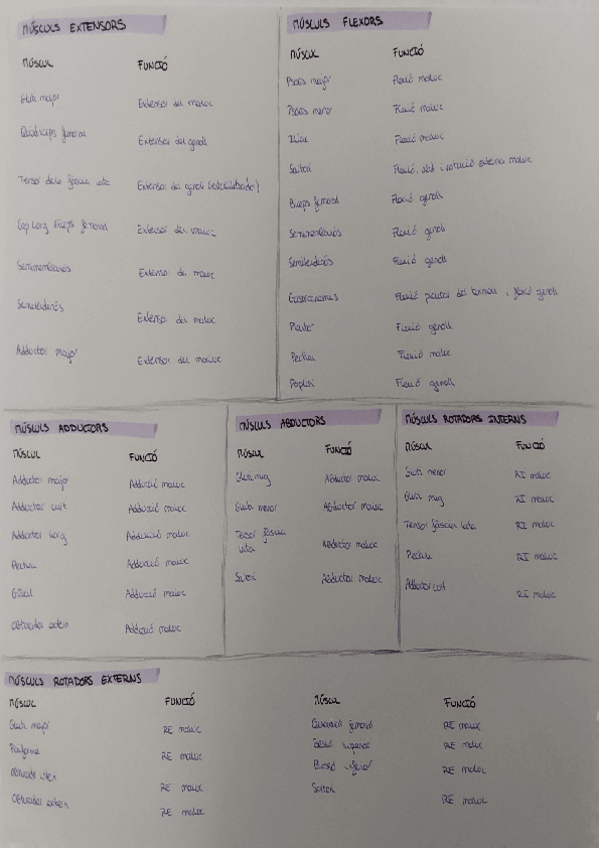 MÚSCULS EXTENSORS
MÚSCUL FUNCIÓ
Gluti major Extensor del maluc
Quàdriceps femoral Extensor del genoll
Tensor de la fàscia lata Extensor del genoll
Cap llarg bíceps femoral Extensor del maluc
Semimembranós Extensor del maluc
Semitendinós Extensor del maluc
Adductor major Extensor del maluc
MÚSCULS FLEXORS
MÚSCUL FUNCIÓ
Psoas major Flexió maluc
Psoas menor Flexió maluc
Ilíac Flexió maluc
Sartori Flexió, abd i rotació externa maluc
Bíceps femoral Flexió genoll
Semimembranós Flexió genoll
Semitendinós Flexió genoll
Gastrocnemius Flexió plantar del turmell i flexió genoll
Plantar Flexió genoll
Pectini Flexió maluc
Popliti Flexió genoll
MÚSCULS ADDUCTORS
MÚSCUL FUNCIÓ
Adductor major Adducció maluc
Adductor curt Adducció maluc
Adductor llarg Adducció maluc
Pectini Adducció maluc
Gràcil Adducció maluc
Obturador extern Adducció maluc
MÚSCULS ABDUCTORS
MÚSCUL FUNCIÓ
Gluti mig Abductor maluc
Gluti menor Abductor maluc
Tensor fàscia
lata Abductor maluc
Sartori Abductor maluc
MÚSCULS ROTADORS INTERNS
MÚSCUL FUNCIÓ
Gluti menor RI maluc
Gluti mig RI maluc
Tensor fàscia lata RI maluc
Pectini RI maluc
Adductor curt RI maluc
MÚSCULS ROTADORS EXTERNS
MÚSCUL FUNCIÓ
Gluti major RE maluc
Piriforme RE maluc
Obturador intern RE maluc
Obturador extern RE maluc
MÚSCUL FUNCIÓ
Quadrat femoral RE maluc
Bessó superior RE maluc
Bessó inferior RE maluc
Sartori RE maluc